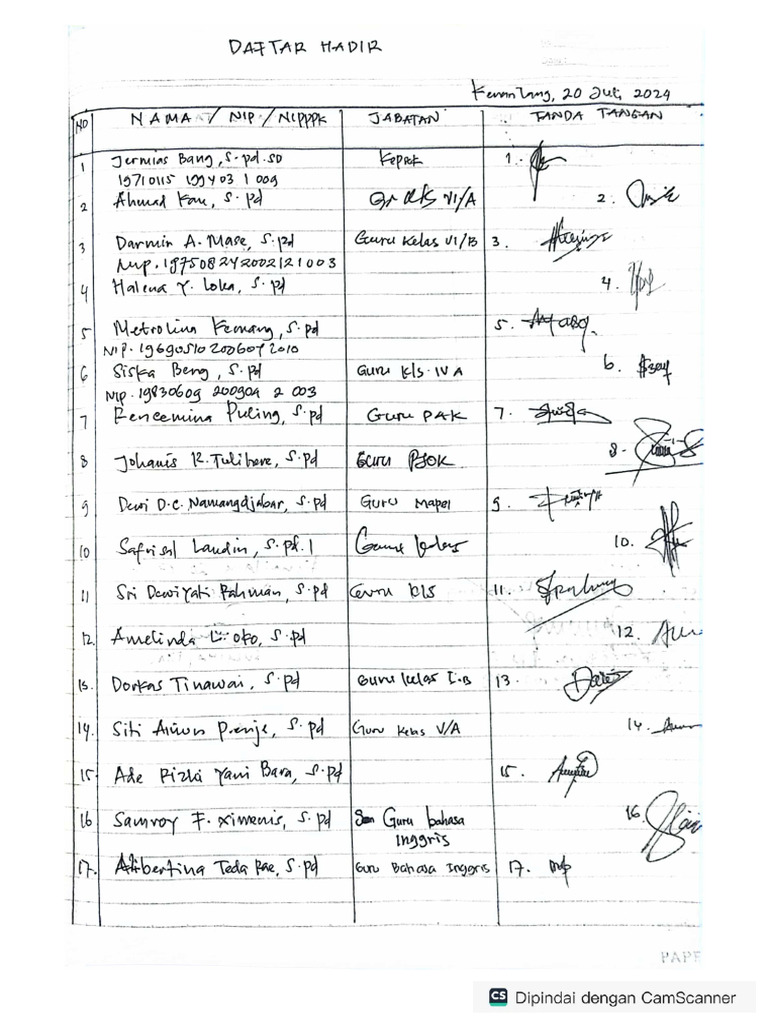 DAFTAR HADIR
20 Juli, 2024
NO NAMA / NIP / NIPPPK JABATAN TANDA TANGAN
1 Jermias Bang, S.pd.SD Kepsek 1.
19710115 199403 1 009
2 Ahmad Kau, S.pd VI/A 2.
3 Darmin A. Mase, S.pd Guru Kelas VI/B 3.
Nip. 197508242002121003
4 Halena Y. Loka, S.pd 4.
5 Metrolina Kemang, S.pd 5.
NIP. 19690510 200607 2010
6 Siska Beng, S.pd Guru kls IV A 6.
Nip. 19830609 200904 2 003
7 Puling, S.pd Guru PAK 7.
8 Johanis R. S.pd Guru PJOK 8.
9 Dewi D.C. Namangdjabar, S.pd Guru Mapel 9.
10 Landin, S.pd.I 10.
11 Sri Dewiyati Rahman, S.pd Guru kls 11.
12. Amelinda S.pd 12.
13. Dorkas Tinawai, S.pd Guru kelas I.B 13
14. Siti S.pd Guru Kelas V/A 14.
15 Ade Rizki Yani Bara, S.pd 15.
16 Samroy F. Ximenis, S.pd Guru bahasa 16.
Inggris
17. Albertina Teda Rae, S.pd Guru Bahasa Inggris 17.
CS Dipindai dengan CamScanner